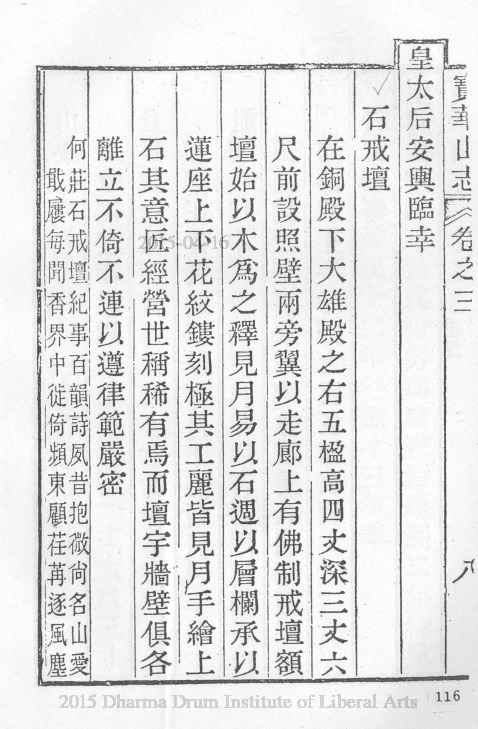 寶華山志 卷之三 八
皇太后安輿臨幸
石戒壇
在銅殿下大雄殿之右五楹高四丈深三丈六
尺前設照壁兩旁翼以走廊上有佛制戒壇額
壇始以木爲之釋見月易以石週以層欄承以
蓮座上下花紋鏤刻極其工麗皆見月手繪上
石其意匠經營世稱稀有焉而壇宇牆壁俱各
離立不倚不連以遵律範嚴密
何莊石戒壇紀事百韻詩夙昔抱微尚名山愛
戢屨每聞香界中徙倚頻東顧荏苒逐風塵
2015-04-16
2015 Dharma Drum Institute of Liberal Arts
116